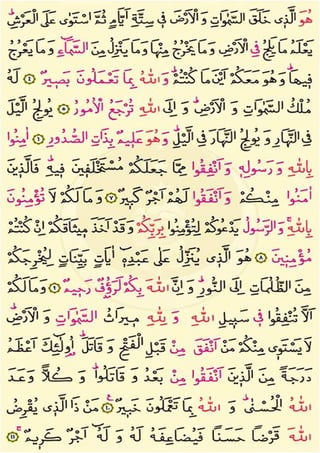 هُوَ الَّذ۪ي خَلَقَ السَّمٰوَاتِ وَالْاَرْضَ ف۪ي سِتَّةِ اَيَّامٍ ثُمَّ اسْتَوٰى عَلَى الْعَرْشِۜ
يَعْلَمُ مَا يَلِجُ فِي الْاَرْضِ وَمَا يَخْرُجُ مِنْهَا وَمَا يَنْزِلُ مِنَ السَّمَٓاءِ وَمَا يَعْرُجُ
ف۪يهَاۜ وَهُوَ مَعَكُمْ اَيْنَ مَا كُنْتُمْۜ وَاللّٰهُ بِمَا تَعْمَلُونَ بَص۪يرٌ ﴿٤﴾ لَهُ
مُلْكُ السَّمٰوَاتِ وَالْاَرْضِۜ وَاِلَى اللّٰهِ تُرْجَعُ الْاُمُورُ ﴿٥﴾ يُولِجُ الَّيْلَ
فِي النَّهَارِ وَيُولِجُ النَّهَارَ فِي الَّيْلِۜ وَهُوَ عَل۪يمٌ بِذَاتِ الصُّدُورِ ﴿٦﴾ اٰمِنُوا
بِاللّٰهِ وَرَسُولِه۪ وَاَنْفِقُوا مِمَّا جَعَلَكُمْ مُسْتَخْلَف۪ينَ ف۪يهِۜ فَالَّذ۪ينَ
اٰمَنُوا مِنْكُمْ وَاَنْفَقُوا لَهُمْ اَجْرٌ كَب۪يرٌ ﴿٧﴾ وَمَا لَكُمْ لَا تُؤْمِنُونَ
بِاللّٰهِۚ وَالرَّسُولُ يَدْعُوكُمْ لِتُؤْمِنُوا بِرَبِّكُمْ وَقَدْ اَخَذَ م۪يثَاقَكُمْ اِنْ كُنْتُمْ
مُؤْمِن۪ينَ ﴿٨﴾ هُوَ الَّذ۪ي يُنَزِّلُ عَلٰى عَبْدِه۪ٓ اٰيَاتٍ بَيِّنَاتٍ لِيُخْرِجَكُمْ
مِنَ الظُّلُمَاتِ اِلَى النُّورِۜ وَاِنَّ اللّٰهَ بِكُمْ لَرَؤُ۫فٌ رَح۪يمٌ ﴿٩﴾ وَمَا لَكُمْ
اَلَّا تُنْفِقُوا ف۪ي سَب۪يلِ اللّٰهِ وَلِلّٰهِ م۪يرَاثُ السَّمٰوَاتِ وَالْاَرْضِۜ
لَا يَسْتَو۪ي مِنْكُمْ مَنْ اَنْفَقَ مِنْ قَبْلِ الْفَتْحِ وَقَاتَلَۜ اُو۬لٰٓئِكَ اَعْظَمُ
دَرَجَةً مِنَ الَّذ۪ينَ اَنْفَقُوا مِنْ بَعْدُ وَقَاتَلُواۜ وَكُلًّا وَعَدَ
اللّٰهُ الْحُسْنٰىۜ وَاللّٰهُ بِمَا تَعْمَلُونَ خَب۪يرٌ۟ ﴿١٠﴾ مَنْ ذَا الَّذ۪ي يُقْرِضُ
اللّٰهَ قَرْضًا حَسَنًا فَيُضَاعِفَهُ لَهُ وَلَهُٓ اَجْرٌ كَر۪يمٌۚ ﴿١١﴾